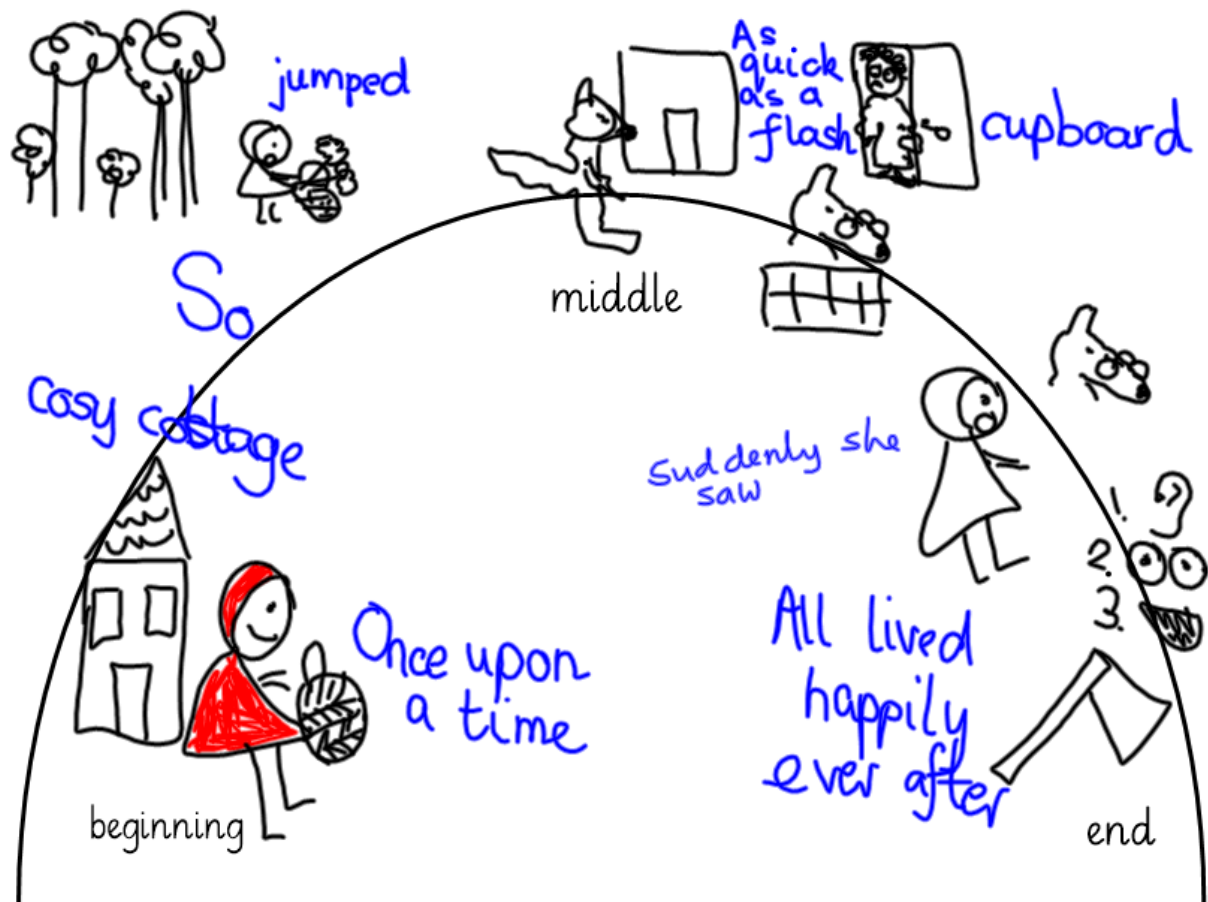 jumped
As
quick
as a
flash
cupboard
So
middle
cosy cottage
Suddenly she
saw
Once upon
a time
1.
2.
3.
All lived
happily
ever after
beginning
end